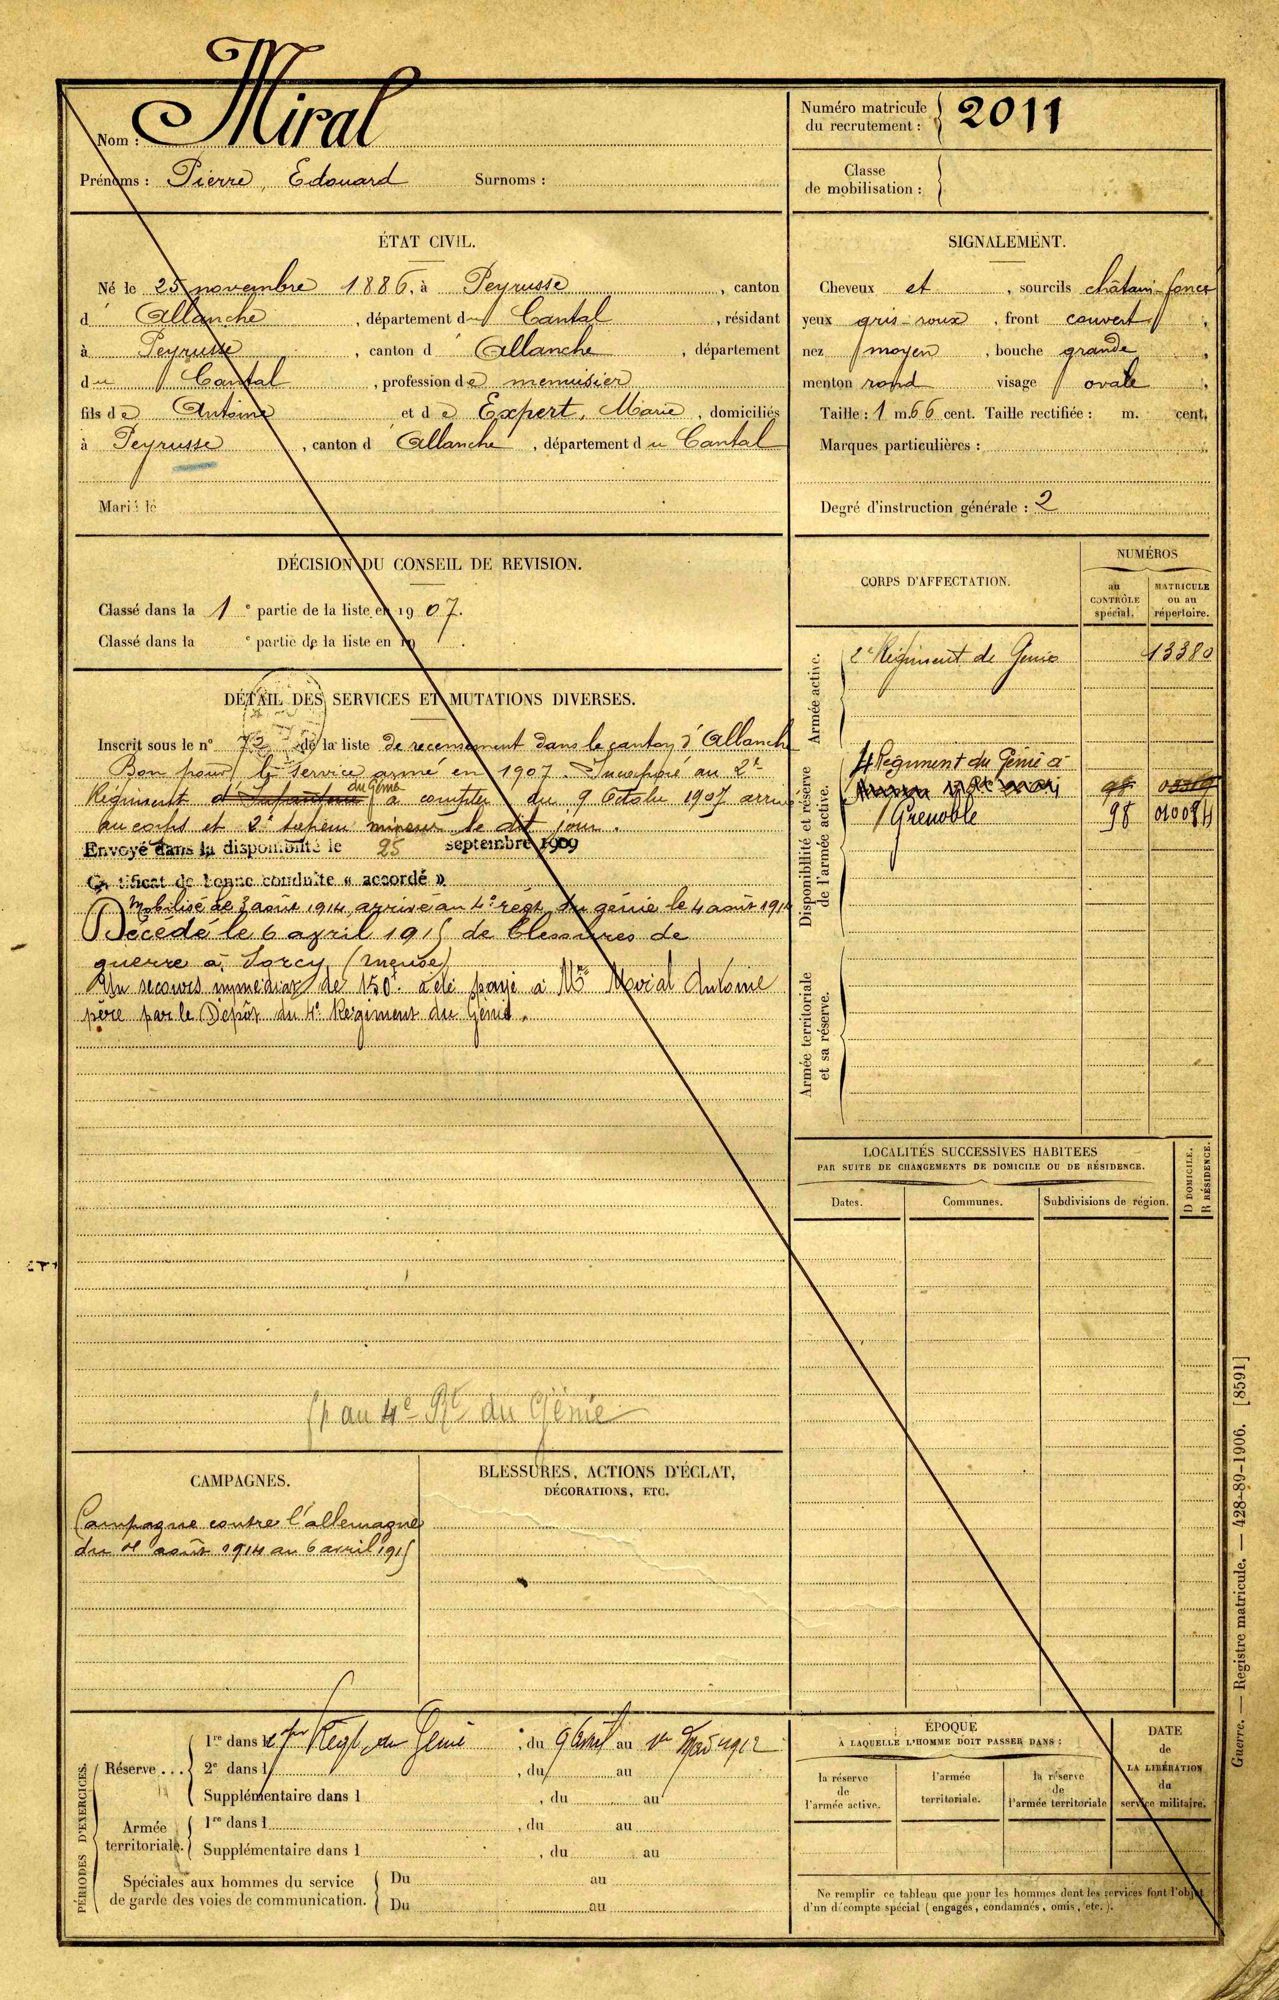 Nom : Miral
Prénoms : Pierre, Edouard Surnoms :
Numéro matricule du recrutement : 2011
Classe de mobilisation :
ÉTAT CIVIL.
Né le 25 novembre 1886, à Peyrusse, canton
d' Allanche, département du Cantal, résidant
à Peyrusse, canton d' Allanche, département
du Cantal, profession de menuisier
fils de Antoine et de Expert, Marie, domiciliés
à Peyrusse, canton d' Allanche, département du Cantal
Marié le
SIGNALEMENT.
Cheveux et, sourcils châtain-foncé
yeux gris-roux, front couvert,
nez moyen, bouche grande,
menton rond visage ovale,
Taille : 1 m. 66 cent. Taille rectifiée : m. cent.
Marques particulières :
Degré d'instruction générale : 2
DÉCISION DU CONSEIL DE REVISION.
Classé dans la 1e partie de la liste en 1907.
Classé dans la e partie de la liste en 19 .
DÉTAIL DES SERVICES ET MUTATIONS DIVERSES.
Inscrit sous le n° 72 de la liste de recensement dans le canton d'Allanche
Bon pour le service armé en 1907. Incorporé au 2e
Régiment d'Infanterie du Génie à compter du 9 Octobre 1907 arrivé
au corps et 2e sapeur mineur le dit jour.
Envoyé dans la disponibilité le 25 septembre 1909
Certificat de bonne conduite « accordé »
Mobilisé le 3 août 1914 arrivé au 4e régt du génie le 4 août 1914
Décédé le 6 avril 1915 de blessures de
guerre à Sorcy (Meuse)
Un secours immédiat de 150f a été payé à Mr Antoine
père par le Dépôt du 4e Régiment du Génie.
au 4e Rt du Génie
CORPS D'AFFECTATION.
NUMÉROS
au CONTRÔLE spécial.
MATRICULE ou au répertoire.
Armée active.
2e Régiment de Génie 13380
Disponibilité et réserve de l'armée active.
4 Régiment du Génie à
Grenoble 98 010084
Armée territoriale et sa réserve.
LOCALITÉS SUCCESSIVES HABITEES
PAR SUITE DE CHANGEMENTS DE DOMICILE OU DE RÉSIDENCE.
Dates. Communes. Subdivisions de région. D DOMICILE. R RÉSIDENCE.
CAMPAGNES.
Campagne contre l'allemagne
du 4 août 1914 au 6 avril 1915
BLESSURES, ACTIONS D'ÉCLAT,
DÉCORATIONS, ETC.
PÉRIODES D'EXERCICES.
Réserve...
1re dans le Régt du Génie, du 9 Avril au 1er Mai 1912
2e dans l, du au
Supplémentaire dans l, du au
Armée territoriale.
1re dans l, du au
Supplémentaire dans l, du au
Spéciales aux hommes du service
de garde des voies de communication.
Du au
Du au
ÉPOQUE
À LAQUELLE L'HOMME DOIT PASSER DANS :
la réserve de l'armée active.
l'armée territoriale.
la réserve de l'armée territoriale
DATE de LA LIBÉRATION du service militaire.
Ne remplir ce tableau que pour les hommes dont les services font l'objet
d'un décompte spécial (engagés, condamnés, omis, etc.).
Guerre. — Registre matricule. — 428-89-1906. [8591]